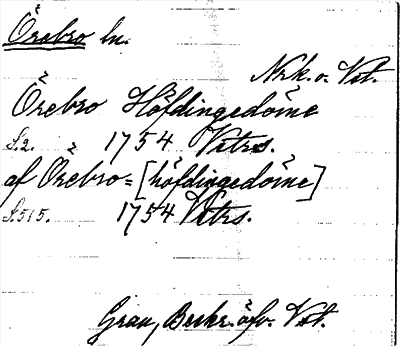 Örebro ln.
Nrk. o. Vst.
Örebro Höfdingedöme
S. 2. 1754 Vtrs.
af Örebro = [höfdingedöme]
S. 515. 1754 Vtrs.
Grau, Beskr. öfv. Vst.